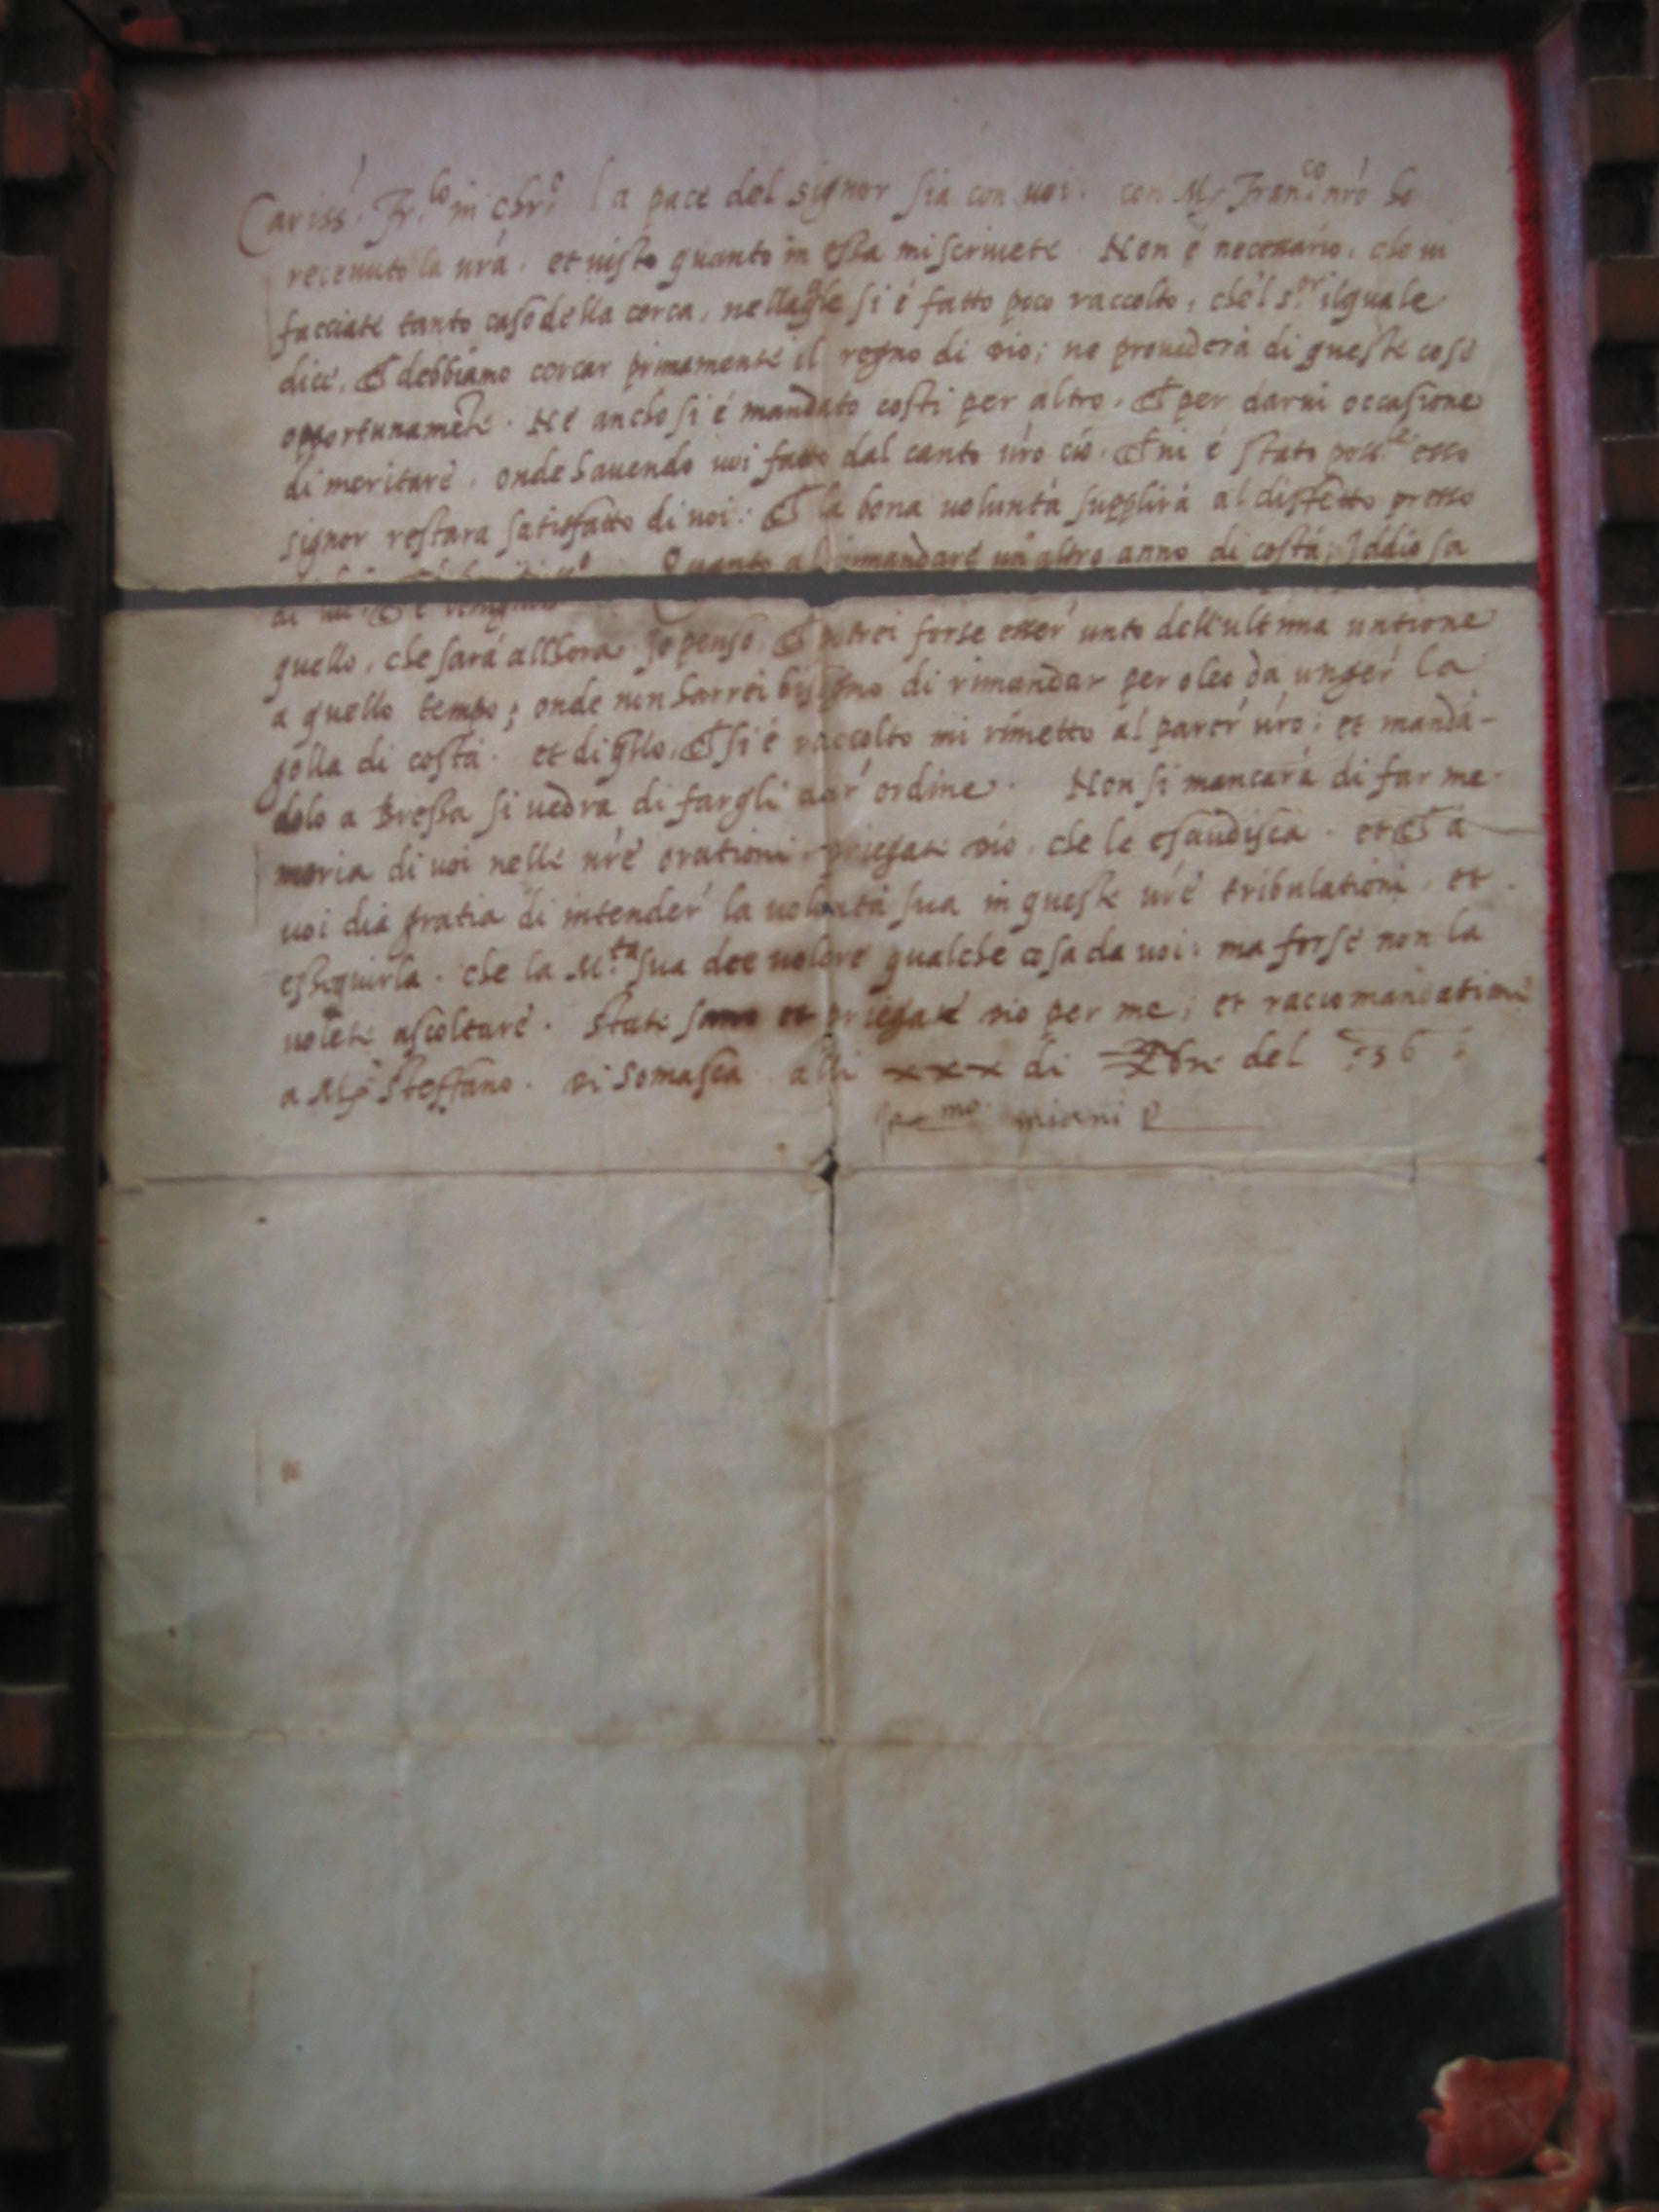 Cariss. Fr.lo in chr.o la pace del signor sia con uoi. con M. Fran.co nrō ho
receuuto la urā. et uisto quanto in essa mi scriuete. Non è necessario, che ui
facciate tanto caso della cerca, nella qle si è fatto poco raccolto, che'l S.or il quale
dice, che debbiamo cercar primamente il regno di Dio; ne prouederà di queste cose
opportunamēte. Ne ancho si è mandato costì per altro, che per darui occasione
di meritare, onde hauendo uoi fatto dal canto urō ciò, che ui è stato poss.le esso
signor restara satisfatto di uoi: che la bona uoluntà supplirà al diffetto presso
di lui, che è benigniss.o Quanto al rimandare un'altro anno di costà; Iddio sa
quello, che sarà allhora. Io penso, che potrei forse esser' unto dell'ultima untione
a quello tempo; onde non harrei bisogno di rimandar per oleo da unger' la
golla di costà. et di qllo, che si è raccolto mi rimetto al parer' urō; et mandā-
dolo a Bressa si uedrà di fargli dar' ordine. Non si mancarà di far me-
moria di uoi nelle nrē orationi. priegate Dio, che le esaudisca. et che a
uoi dia gratia di intender' la uoluntà sua in queste urē tribulationi, et
essequirla. che la M.tà sua dee uolere qualche cosa da uoi: ma forse non la
uolete ascoltare. State sano et priegate Dio per me; et raccomandatimi
a Mr. Steffano. Di Somasca alli xxx di Xbre del 1536.
Hie.mo miani